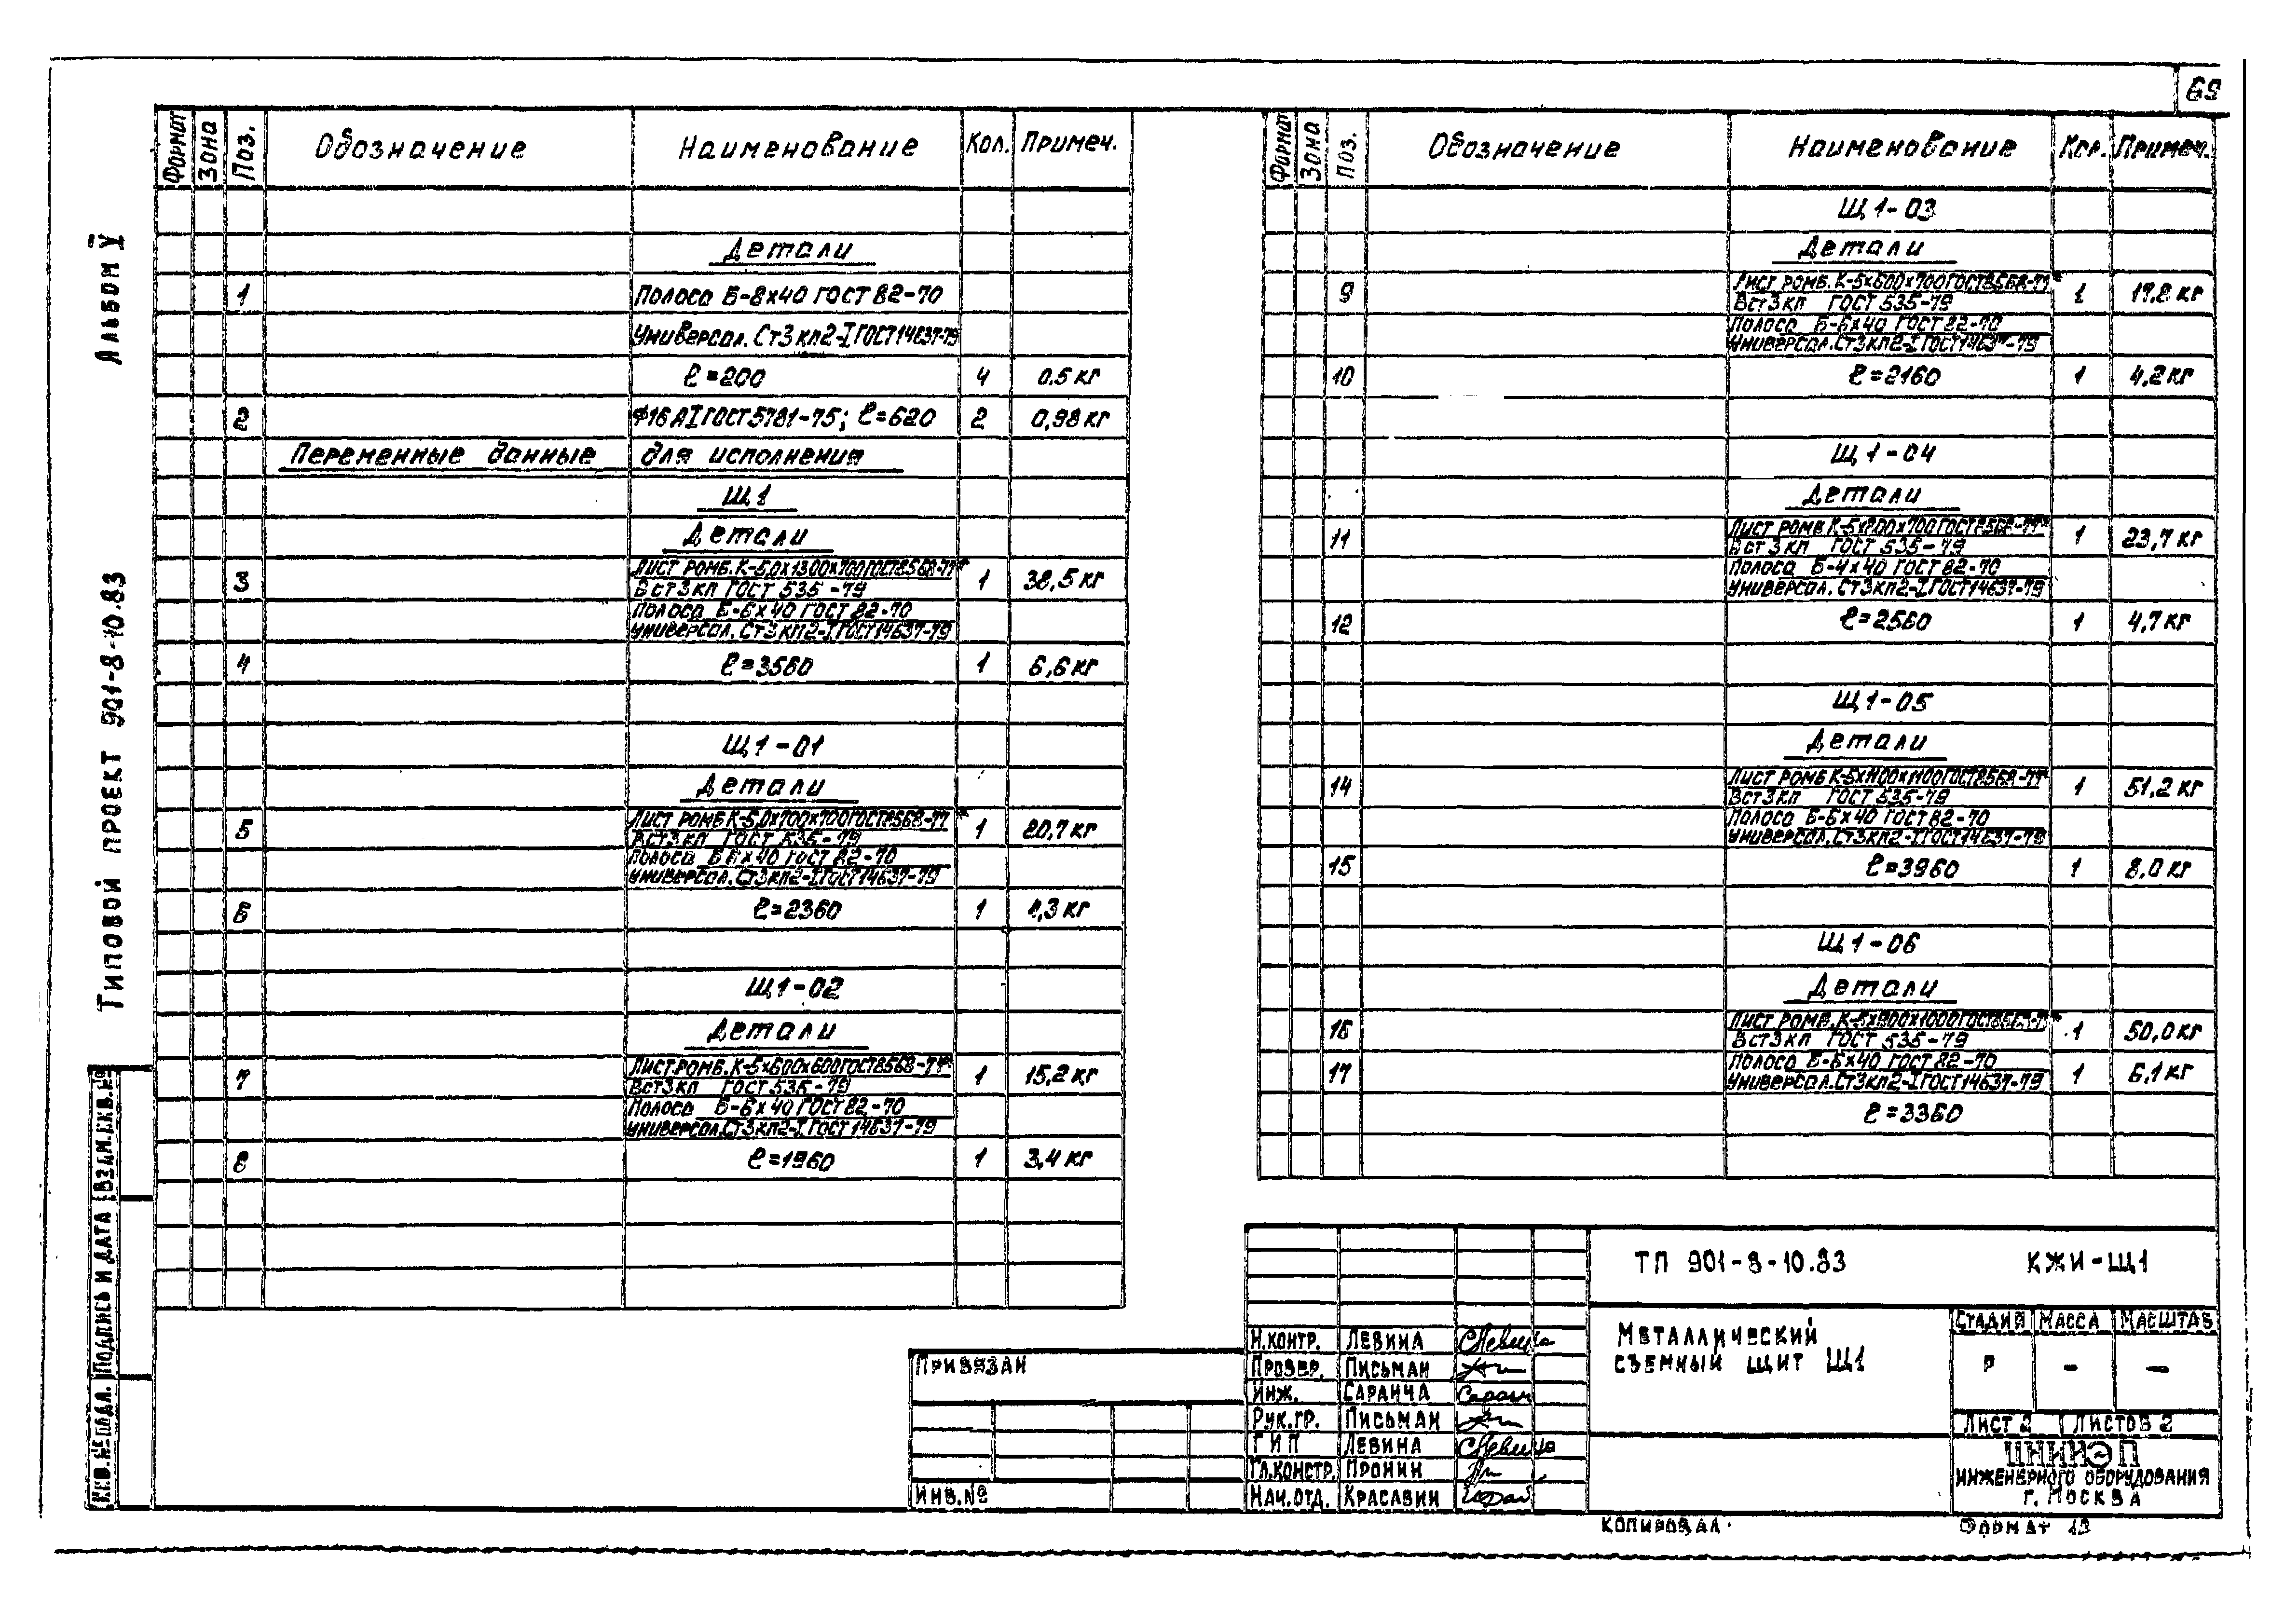 69
Альбом V
Типовой проект 901-8-10.83
Формат Зона Поз. Обозначение Наименование Кол. Примеч.
Детали
1 Полоса Б-8х40 ГОСТ 82-70
Универсал. Ст3кп2-I ГОСТ 14637-79
ℓ=200 4 0,5 кг
2 Ф16АI ГОСТ 5781-75; ℓ=620 2 0,98 кг
Переменные данные для исполнения
Щ1
Детали
3 Лист ромб. К-5,0х1300х700 ГОСТ 8568-77* 1 38,5 кг
Вст3кп ГОСТ 535-79
Полоса Б-6х40 ГОСТ 82-70
Универсал. Ст3кп2-I ГОСТ 14637-79
4 ℓ=3560 1 6,6 кг
Щ1-01
Детали
5 Лист ромб К-5,0х700х700 ГОСТ 8568-77* 1 20,7 кг
Вст3кп ГОСТ 535-79
Полоса Б 6х40 ГОСТ 82-70
Универсал. Ст3кп2-I ГОСТ 14637-79
6 ℓ=2360 1 4,3 кг
Щ1-02
Детали
7 Лист ромб. К-5х600х600 ГОСТ 8568-77* 1 15,2 кг
Вст3кп ГОСТ 535-79
Полоса Б-6х40 ГОСТ 82-70
Универсал. Ст3кп2-I ГОСТ 14637-79
8 ℓ=1960 1 3,4 кг
Формат Зона Поз. Обозначение Наименование Кол. Примеч.
Щ1-03
Детали
9 Лист ромб. К-5х600х700 ГОСТ 8568-77* 1 17,8 кг
Вст3кп ГОСТ 535-79
Полоса Б-6х40 ГОСТ 82-70
Универсал. Ст3кп2-I ГОСТ 14637-79
10 ℓ=2160 1 4,2 кг
Щ1-04
Детали
11 Лист ромб К-5х800х700 ГОСТ 8568-77* 1 23,7 кг
Вст3кп ГОСТ 535-79
Полоса Б-4х40 ГОСТ 82-70
Универсал. Ст3кп2-I ГОСТ 14637-79
12 ℓ=2560 1 4,7 кг
Щ1-05
Детали
14 Лист ромб К-5х1100х1100 ГОСТ 8568-77* 1 51,2 кг
Вст3кп ГОСТ 535-79
Полоса Б-6х40 ГОСТ 82-70
Универсал. Ст3кп2-I ГОСТ 14637-79
15 ℓ=3960 1 8,0 кг
Щ1-06
Детали
16 Лист ромб. ГОСТ 1 50,0 кг
Вст3кп ГОСТ 535-79
17 Полоса Б-6х40 ГОСТ 82-70 1 6,1 кг
Универсал. Ст3кп2-I ГОСТ 14637-79
ℓ=3360
Инв.№ подл. Подпись и дата Взам.инв.№
Привязан
Инв.№
Н.контр. Левина
Провер. Письман
Инж. Саранча
Рук.гр. Письман
ГИП Левина
Гл.констр. Пронин
Нач.отд. Красавин
ТП 901-8-10.83 КЖИ-Щ1
Металлический
съемный щит Щ1
Стадия Масса Масштаб
Р - -
Лист 2 Листов 2
ЦНИИЭП
инженерного оборудования
г. Москва
Копировал
Формат